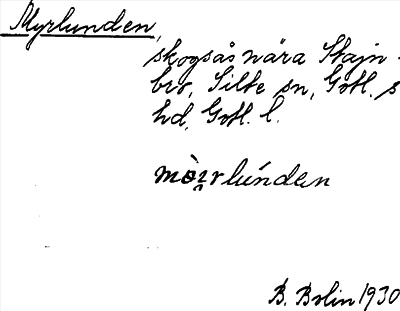 Myrlunden,
skogsås nära Stajn-
bro, Silte sn, Gotl. s
hd, Gotl. l.
lúnden
B. Bolin 1930